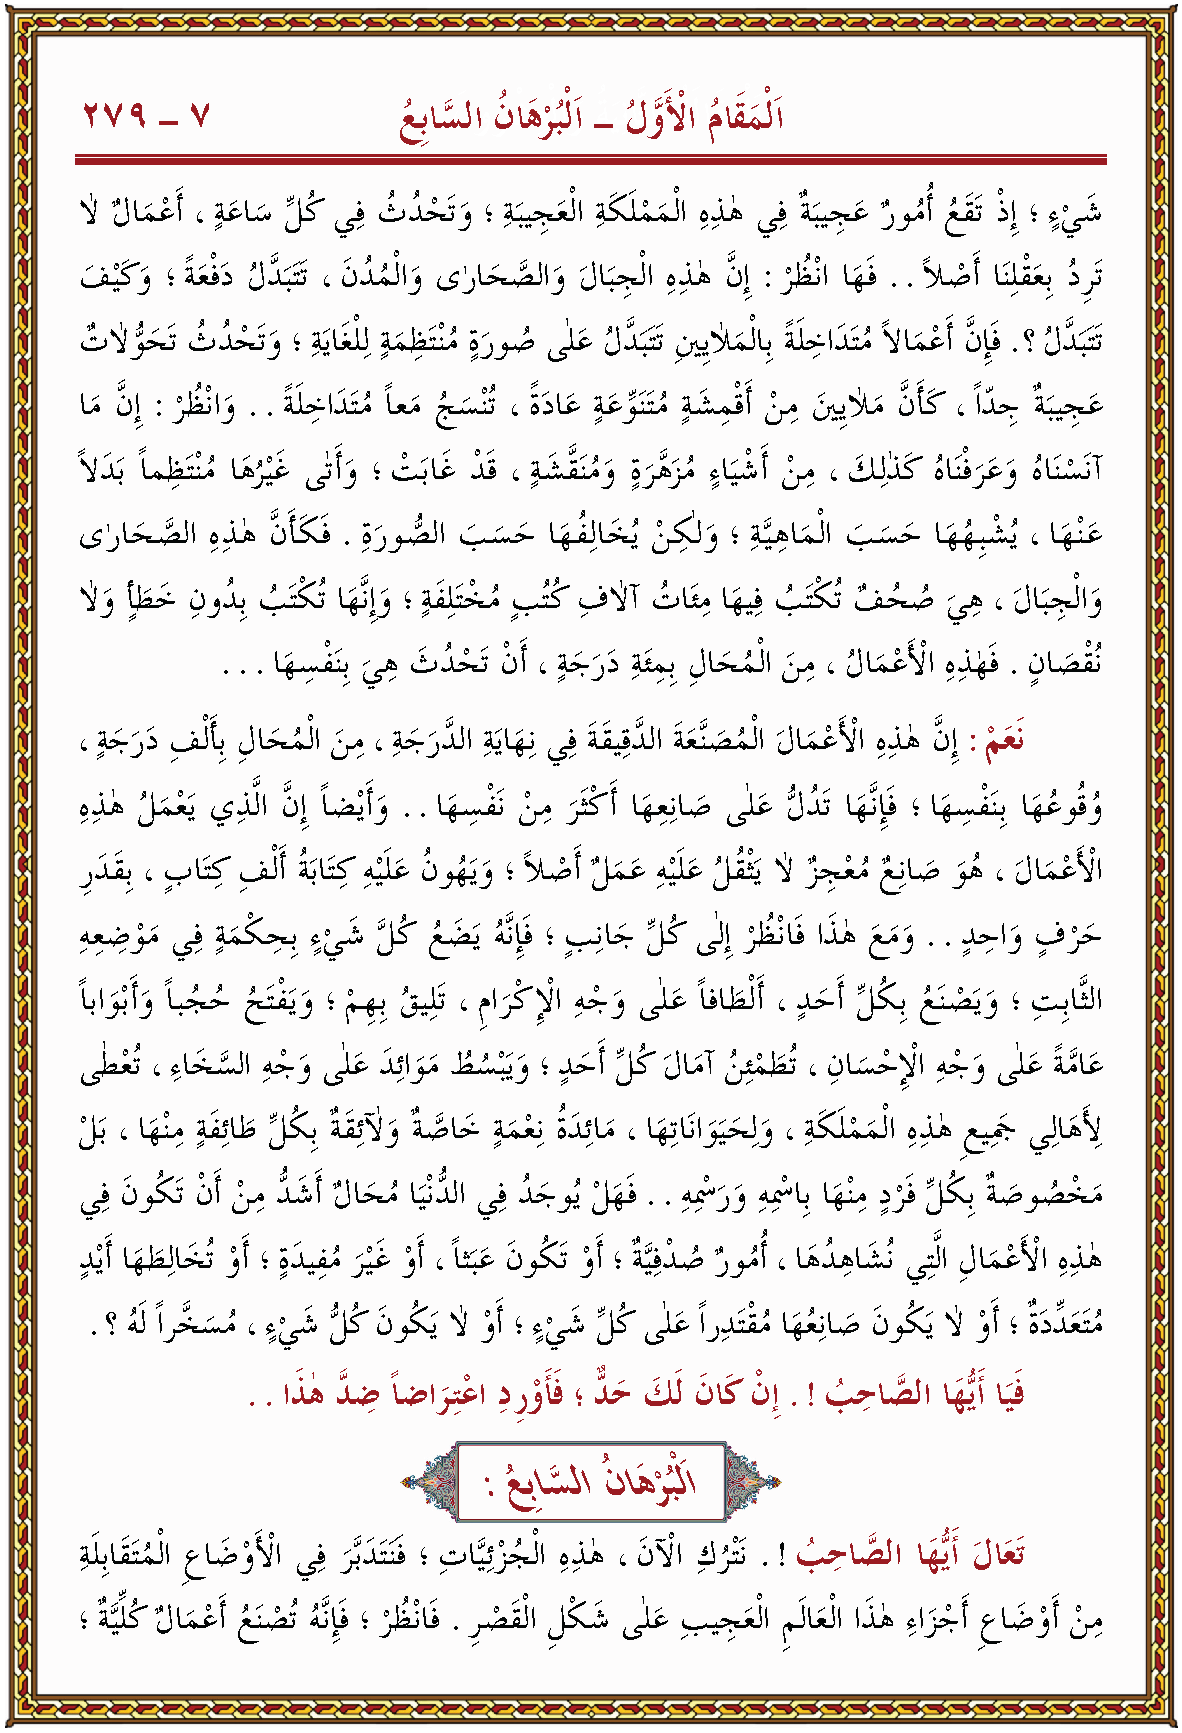 اَلْمَقَامُ الْأَوَّلُ ـ اَلْبُرْهَانُ السَّابِعُ ٧ ـ ٢٧٩
شَيْءٍ ؛ إِذْ تَقَعُ أُمُورٌ عَجِيبَةٌ فِي هٰذِهِ الْمَمْلَكَةِ الْعَجِيبَةِ ؛ وَتَحْدُثُ فِي كُلِّ سَاعَةٍ ، أَعْمَالٌ لاٰ
تَرِدُ بِعَقْلِنَا أَصْلاً . . فَهَا اُنْظُرْ : إِنَّ هٰذِهِ الْجِبَالَ وَالصَّحَارٰى وَالْمُدُنَ ، تَتَبَدَّلُ دَفْعَةً ؛ وَكَيْفَ
تَتَبَدَّلُ ؟. فَإِنَّ أَعْمَالاً مُتَدَاخِلَةً بِالْمَلاٰيِينِ تَتَبَدَّلُ عَلٰى صُورَةٍ مُنْتَظِمَةٍ لِلْغَايَةِ ؛ وَتَحْدُثُ تَحَوُّلاٰتٌ
عَجِيبَةٌ جِدّاً ، كَأَنَّ مَلاٰيِينَ مِنْ أَقْمِشَةٍ مُتَنَوِّعَةٍ عَادَةً ، تُنْسَجُ مَعاً مُتَدَاخِلَةً . . وَانْظُرْ : إِنَّ مَا
آنَسْنَاهُ وَعَرَفْنَاهُ كَذٰلِكَ ، مِنْ أَشْيَاءٍ مُزَهَّرَةٍ وَمُنَقَّشَةٍ ، قَدْ غَابَتْ ؛ وَأَتٰى غَيْرُهَا مُنْتَظِماً بَدَلاً
عَنْهَا ، يُشْبِهُهَا حَسَبَ الْمَاهِيَّةِ ؛ وَلٰكِنْ يُخَالِفُهَا حَسَبَ الصُّورَةِ . فَكَأَنَّ هٰذِهِ الصَّحَارٰى
وَالْجِبَالَ ، هِيَ صُحُفٌ تُكْتَبُ فِيهَا مِئَاتُ آلاٰفِ كُتُبٍ مُخْتَلِفَةٍ ؛ وَإِنَّهَا تُكْتَبُ بِدُونِ خَطَأٍ وَلاٰ
نُقْصَانٍ . فَهٰذِهِ الْأَعْمَالُ ، مِنَ الْمُحَالِ بِمِئَةِ دَرَجَةٍ ، أَنْ تَحْدُثَ هِيَ بِنَفْسِهَا . . .
نَعَمْ : إِنَّ هٰذِهِ الْأَعْمَالَ الْمُصَنَّعَةَ الدَّقِيقَةَ فِي نِهَايَةِ الدَّرَجَةِ ، مِنَ الْمُحَالِ بِأَلْفِ دَرَجَةٍ ،
وُقُوعُهَا بِنَفْسِهَا ؛ فَإِنَّهَا تَدُلُّ عَلٰى صَانِعِهَا أَكْثَرَ مِنْ نَفْسِهَا . . وَأَيْضاً إِنَّ الَّذِي يَعْمَلُ هٰذِهِ
الْأَعْمَالَ ، هُوَ صَانِعٌ مُعْجِزٌ لاٰ يَثْقُلُ عَلَيْهِ عَمَلٌ أَصْلاً ؛ وَيَهُونُ عَلَيْهِ كِتَابَةُ أَلْفِ كِتَابٍ ، بِقَدَرِ
حَرْفٍ وَاحِدٍ . . وَمَعَ هٰذَا فَانْظُرْ إِلٰى كُلِّ جَانِبٍ ؛ فَإِنَّهُ يَضَعُ كُلَّ شَيْءٍ بِحِكْمَةٍ فِي مَوْضِعِهِ
الثَّابِتِ ؛ وَيَصْنَعُ بِكُلِّ أَحَدٍ ، أَلْطَافاً عَلٰى وَجْهِ الْإِكْرَامِ ، تَلِيقُ بِهِمْ ؛ وَيَفْتَحُ حُجُباً وَأَبْوَاباً
عَامَّةً عَلٰى وَجْهِ الْإِحْسَانِ ، تُطَمْئِنُ آمَالَ كُلِّ أَحَدٍ ؛ وَيَبْسُطُ مَوَائِدَ عَلٰى وَجْهِ السَّخَاءِ ، تُعْطٰى
لِأَهَالِي جَمِيعِ هٰذِهِ الْمَمْلَكَةِ ، وَلِحَيَوَانَاتِهَا ، مَائِدَةُ نِعْمَةٍ خَاصَّةٌ وَلاٰئِقَةٌ بِكُلِّ طَائِفَةٍ مِنْهَا ، بَلْ
مَخْصُوصَةٌ بِكُلِّ فَرْدٍ مِنْهَا بِاسْمِهِ وَرَسْمِهِ . . فَهَلْ يُوجَدُ فِي الدُّنْيَا مُحَالٌ أَشَدُّ مِنْ أَنْ تَكُونَ فِي
هٰذِهِ الْأَعْمَالِ الَّتِي نُشَاهِدُهَا ، أُمُورٌ صُدْفِيَّةٌ ؛ أَوْ تَكُونَ عَبَثاً ، أَوْ غَيْرَ مُفِيدَةٍ ؛ أَوْ تُخَالِطَهَا أَيْدٍ
مُتَعَدِّدَةٌ ؛ أَوْ لاٰ يَكُونَ صَانِعُهَا مُقْتَدِراً عَلٰى كُلِّ شَيْءٍ ؛ أَوْ لاٰ يَكُونَ كُلُّ شَيْءٍ ، مُسَخَّراً لَهُ ؟ .
فَيَا أَيُّهَا الصَّاحِبُ ! . إِنْ كَانَ لَكَ حَدٌّ ؛ فَأَوْرِدِ اعْتِرَاضاً ضِدَّ هٰذَا . .
اَلْبُرْهَانُ السَّابِعُ :
تَعَالَ أَيُّهَا الصَّاحِبُ ! . نَتْرُكِ الْآنَ ، هٰذِهِ الْجُزْئِيَّاتِ ؛ فَنَتَدَبَّرَ فِي الْأَوْضَاعِ الْمُتَقَابِلَةِ
مِنْ أَوْضَاعِ أَجْزَاءِ هٰذَا الْعَالَمِ الْعَجِيبِ عَلٰى شَكْلِ الْقَصْرِ . فَانْظُرْ ؛ فَإِنَّهُ تُصْنَعُ أَعْمَالٌ كُلِّيَّةٌ ؛